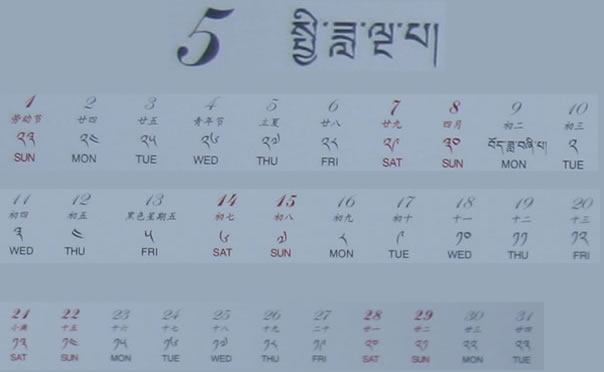 5 སྤྱི་ཟླ་ལྔ་པ།
1 2 3 4 5 6 7 8 9 10
劳动节 廿四 廿五 青年节 立夏 廿八 廿九 四月 初二 初三
༢༣ ༢༤ ༢༥ ༢༦ ༢༧ ༢༨ ༢༩ ༣༠ བོད་ཟླ་བཞི་པ། ༢
SUN MON TUE WED THU FRI SAT SUN MON TUE
11 12 13 14 15 16 17 18 19 20
初四 初五 黑色星期五 初七 初八 初九 初十 十一 十二 十三
༣ ༤ ༥ ༦ ༧ ༨ ༩ ༡༠ ༡༡ ༡༢
WED THU FRI SAT SUN MON TUE WED THU FRI
21 22 23 24 25 26 27 28 29 30 31
小满 十五 十六 十七 十八 十九 二十 廿一 廿二 廿三 廿四
༡༣ ༡༤ ༡༥ ༡༦ ༡༧ ༡༨ ༡༩ ༢༠ ༢༡ ༢༢ ༢༣
SAT SUN MON TUE WED THU FRI SAT SUN MON TUE